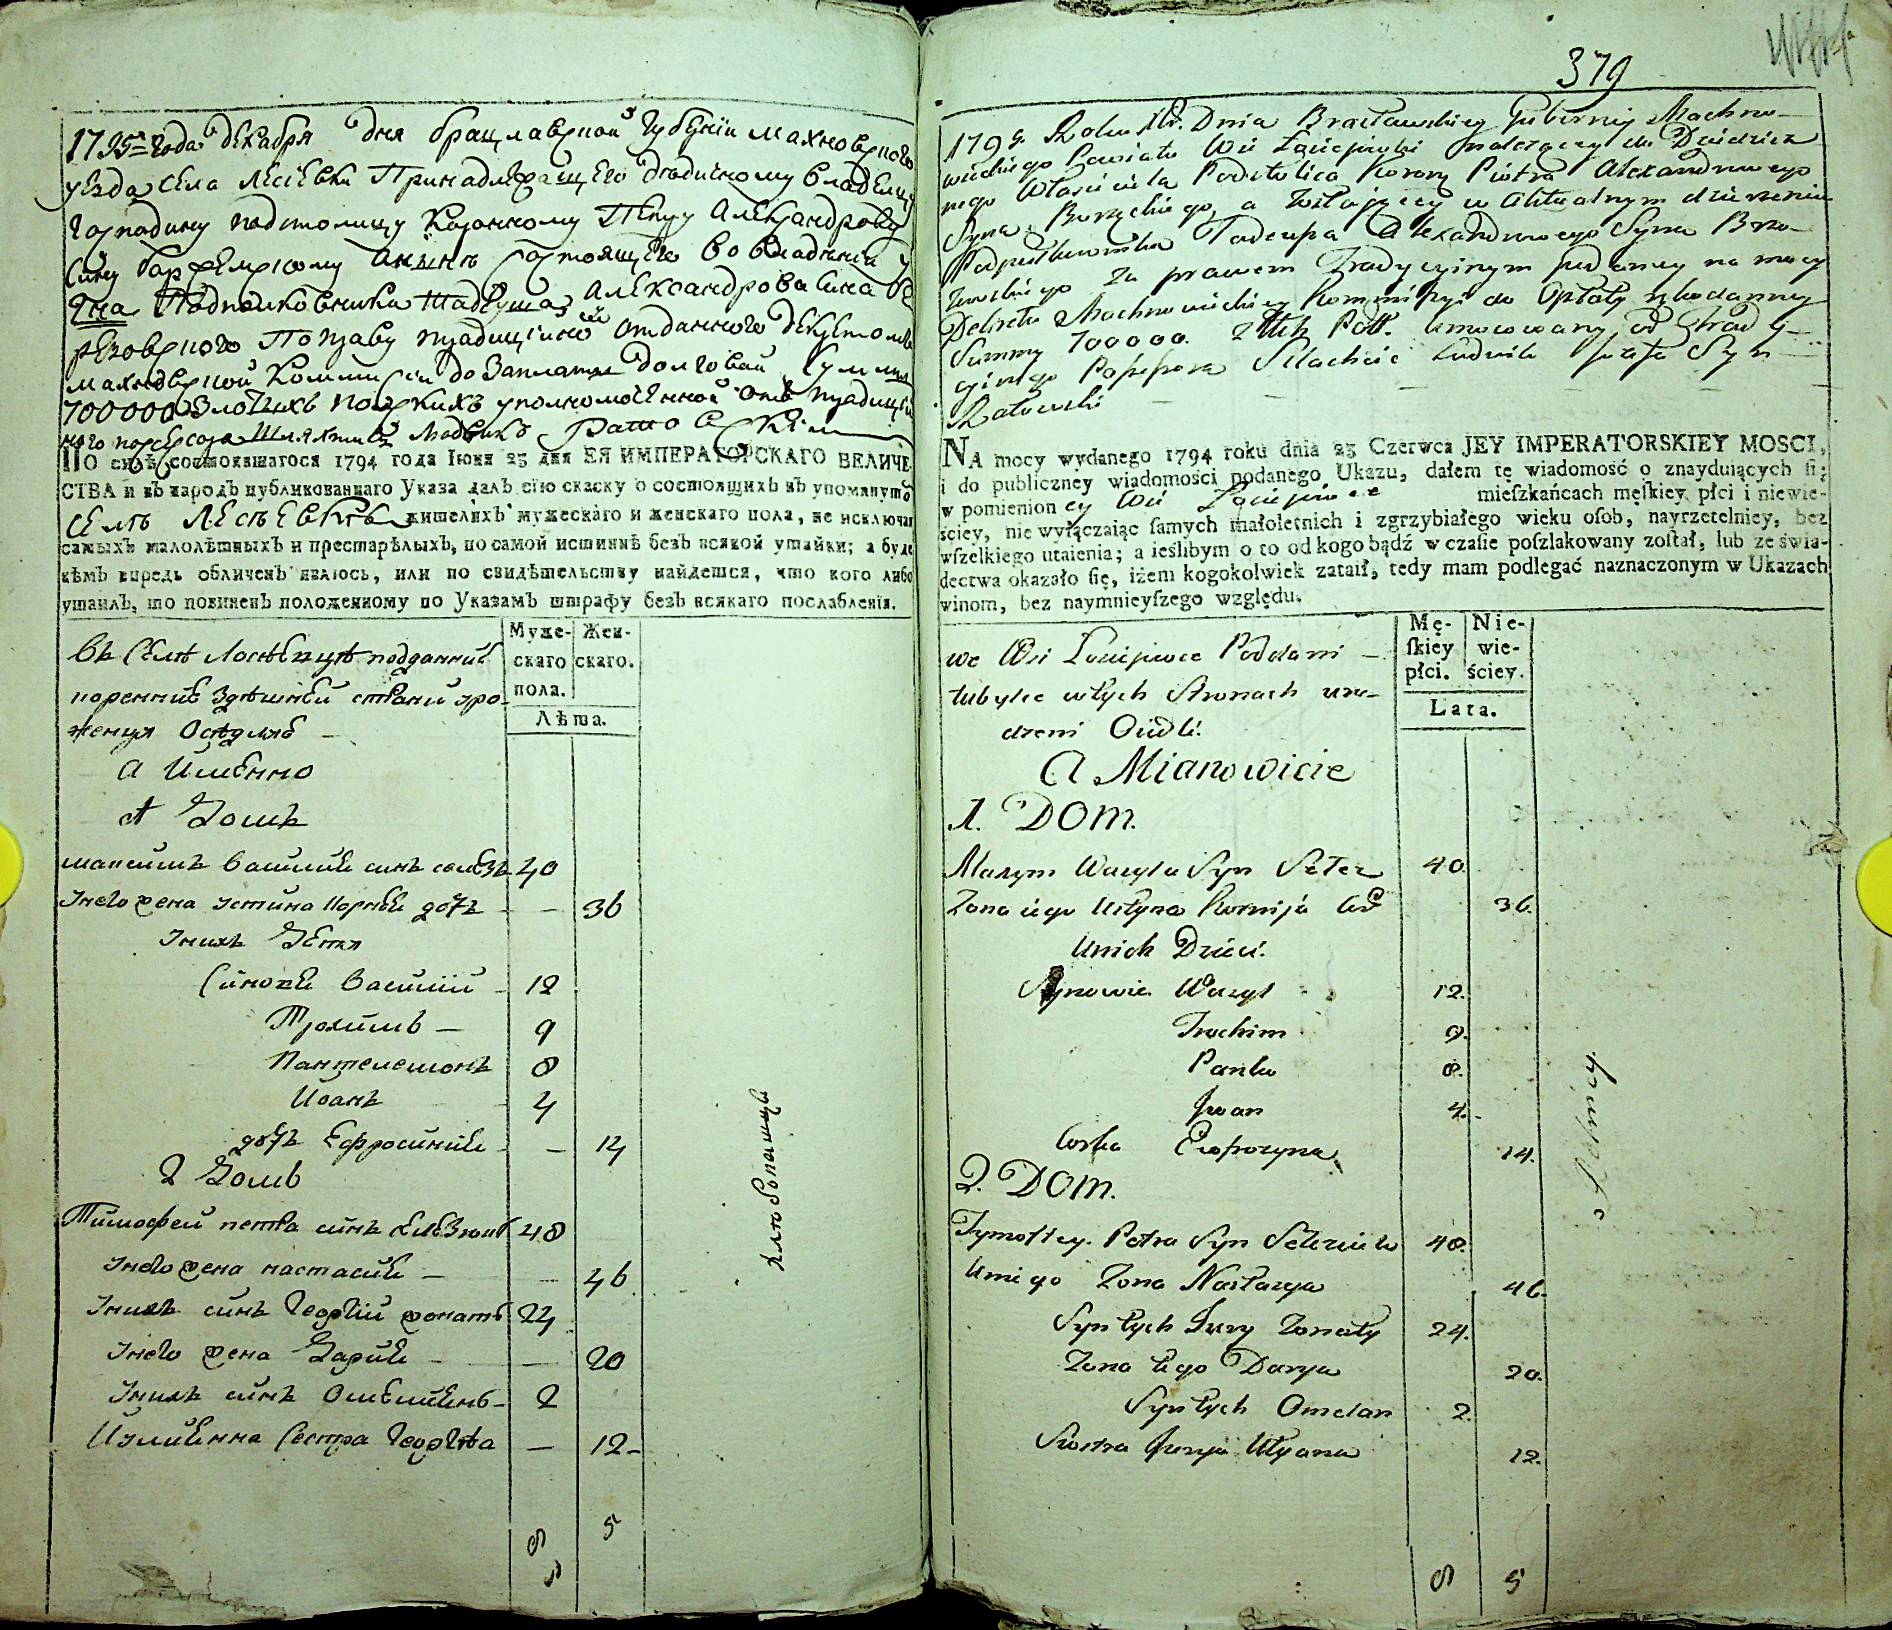 379
1795го года декабря дня брацлавской губернїи махновского
уезда села Лесїевки Принадлежащего дедичному владельцу
господину подстолицу коронному Петру Александрову
сину состоящего во владении
Подполковника Тадеуша Александрова сина
По праву традицїйно отданного декретом
махновской Коммисїи до заплаты долговой суммы
700000 злотихъ полскихъ уполномоченной отъ традицїй
ного посесора Шляхтичъ Людвикъ Ратовскїй
ПО силѣ состоявшагося 1794 года Iюня 23 дня ЕЯ ИМПЕРАТОРСКАГО ВЕЛИЧЕ
СТВА и въ народъ публикованнаго Указа далъ сїю скаску о состоящихъ въ упомянуто
селѣ Лесѣевкѣ жителихъ мужескаго и женскаго пола, не исключая
самыхъ малолѣтныхъ и престарѣлыхъ, по самой истиннѣ безъ всякой утайки; а буде
кѣмъ впредь обличенъ явлюсь, или по свидѣтельству найдется, что кого либо
утаилъ, то повиненъ положенному по Указамъ штрафу безъ всякаго послабленїя.
Муже- Жен-
скаго скаго.
пола.
Лѣта.
въ селѣ подданние
коренние здешней стране уро-
женця
А Именно
1 Домъ
максимъ василия синъ 40
Iнего жена Iстина Корнея дочъ — 36
Iнихъ Дѣтя
Синове Василий 12
Трохимъ — 9
Пантелемонъ 8
Иванъ 4
дочъ Ефросиния — 14
2 Домъ
Тимофей петра синъ 48
Iнего жена настасия — 46
Iнихъ синъ Георгий жонатъ 24
Iнего жена Дария — 20
Iнихъ синъ Омелиянъ 2
Иулиянна Сестра Георгïя — 12
8 5
хлѣбопашцы
1795. Roku Dnia Bracławskiey Gubernij Machno-
wieckiego Powiatu Wś Łosiejowki należącey do Dziedzicz
nego Właściciela Podstolica Korony Piotra Alexandrowego
Syna, a zostającey w aktualnym dzierzeniu
Podpułkownika Tadeusza Alexandrowego Syna Brzo-
zowskiego za prawem Tradycyinym Sądowey na mocy
Dekretu Machnowieckiey Kommissyi do Opłaty
Summy 700000. Złłtch Poll. umocowany od Trady-
cyinego Possesora Szlachcic Ludwik Józefa Syn
Ratowski
NA mocy wydanego 1794 roku dnia 23 Czerwca JEY IMPERATORSKIEY MOSCI,
i do publiczney wiadomości podanego Ukazu, dałem tę wiadomość o znayduiących si;
w pomienioney Wsi Łosiejowce mieſzkańcach męſkiey płci i niewie-
ściey, nie wyłączaiąc ſamych małoletnich i zgrzybiałego wieku oſob, nayrzetelniey, bez
wſzelkiego utaienia; a ieślibym o to od kogo bądź w czaſie poſzlakowany zoſtał, lub ze świa-
dectwa okazało się, iżem kogokolwiek zataił, tedy mam podlegać naznaczonym w Ukazach
winom, bez naymnieyſzego względu.
Mę- Nie-
ſkiey wie-
płci. ściey.
Lata.
we Wsi Łosiejowce Poddani —
tubylce w tych Stronach uro-
dzeni Osiedli.
A Mianowicie
1. DOM.
Maxym Wasyla Syn 40.
Żona iego Ustyna Kornija 36.
U nich Dzieci.
Synowie Wasyl 12.
Trochim 9.
Panko 8.
Iwan 4.
Corka Eufrozyna 14.
2. DOM.
Tymoftey Petra Syn 48.
U niego Żona Nastazya 46.
Syn tych Jurij Żonaty 24.
Żona tego Darya 20.
Syn tych Omelan 2.
Siostra Jurija Ulyana 12.
8 5
Rolnicy